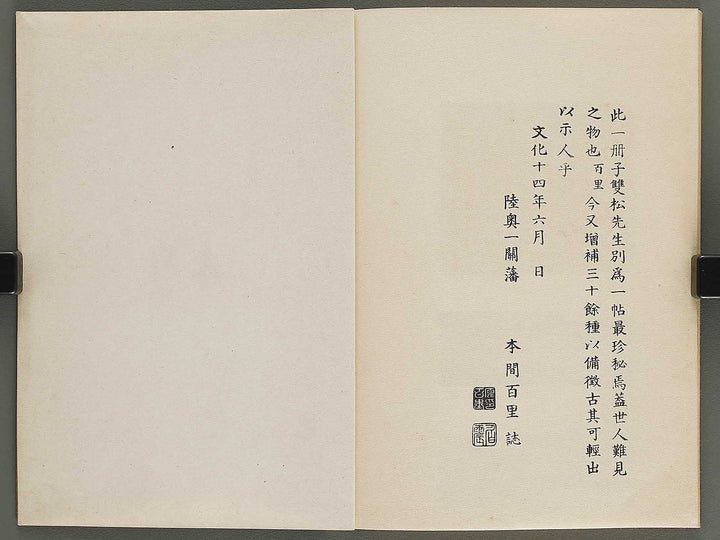 此一册子雙松先生別爲一帖最珍秘焉蓋世人難見
之物也百里今又增補三十餘種以備徵古其可輕出
以示人乎
文化十四年六月 日
陸奥一關藩 本間百里 誌